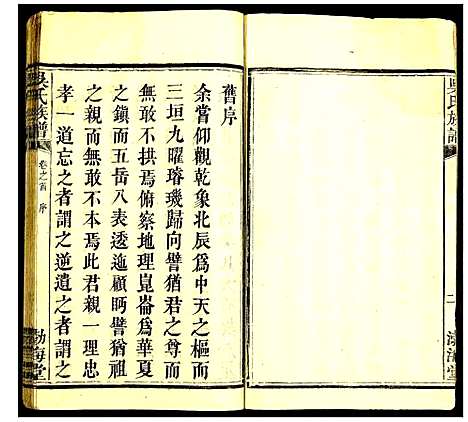 吳氏族譜
二
渤海堂
舊序
余嘗仰觀乾象北辰爲中天之樞而
三垣九曜璿璣歸向譬猶君之尊而
無敢不拱焉俯察地理崑崙爲華夏
之鎮而五岳八表透迤顧眄譬猶祖
之親而無敢不本焉此君親一理忠
孝一道忘之者謂之逆遺之者謂之
吳氏族譜
卷之首
序
渤海堂